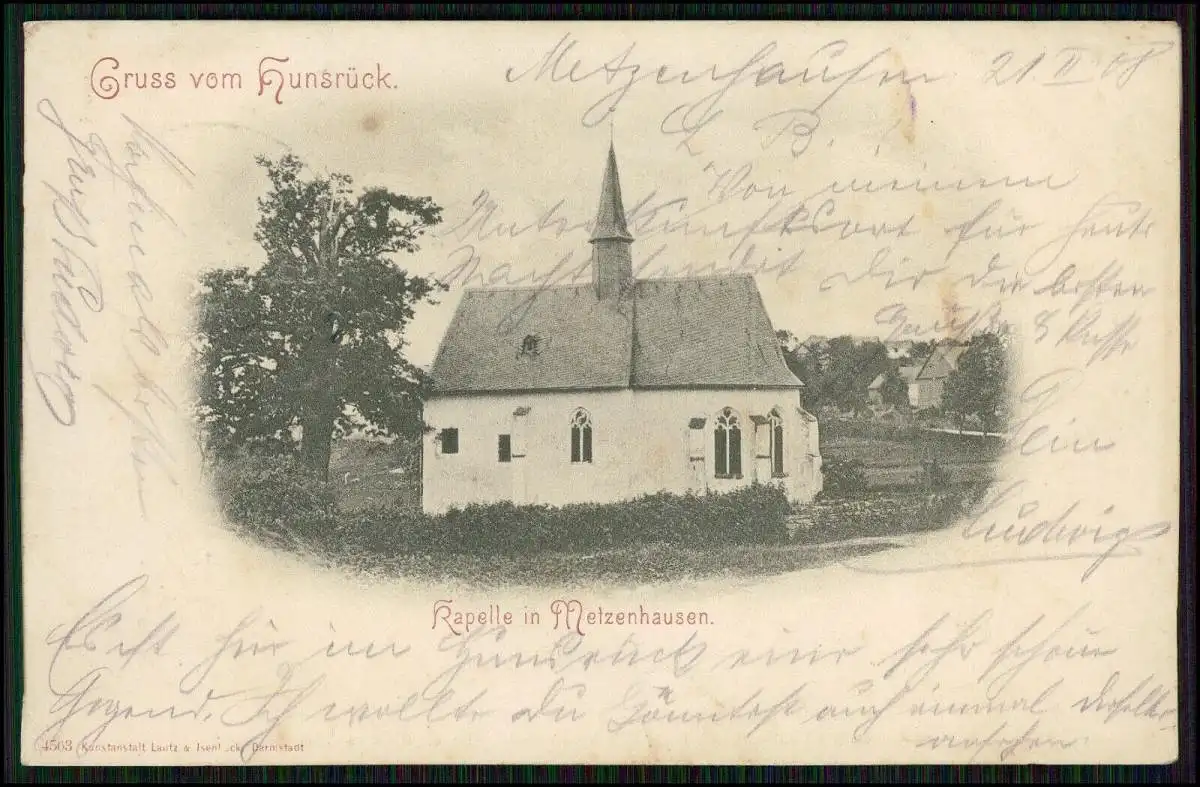 Gruss vom Hunsrück.
Metzenhausen 21 II 08
L. B.!
Von meinem
Unterkunftsort für heute
Nacht sendet Dir die besten
Grüße & Küsse
Dein
Ludwig
Kapelle in Metzenhausen.
Es ist hier im Hunsrück eine sehr schöne
Gegend. Ich wollte Du könntest auch einmal dieselbe
ansehen.
4503 Kunstanstalt Lautz & Isenbeck, Darmstadt